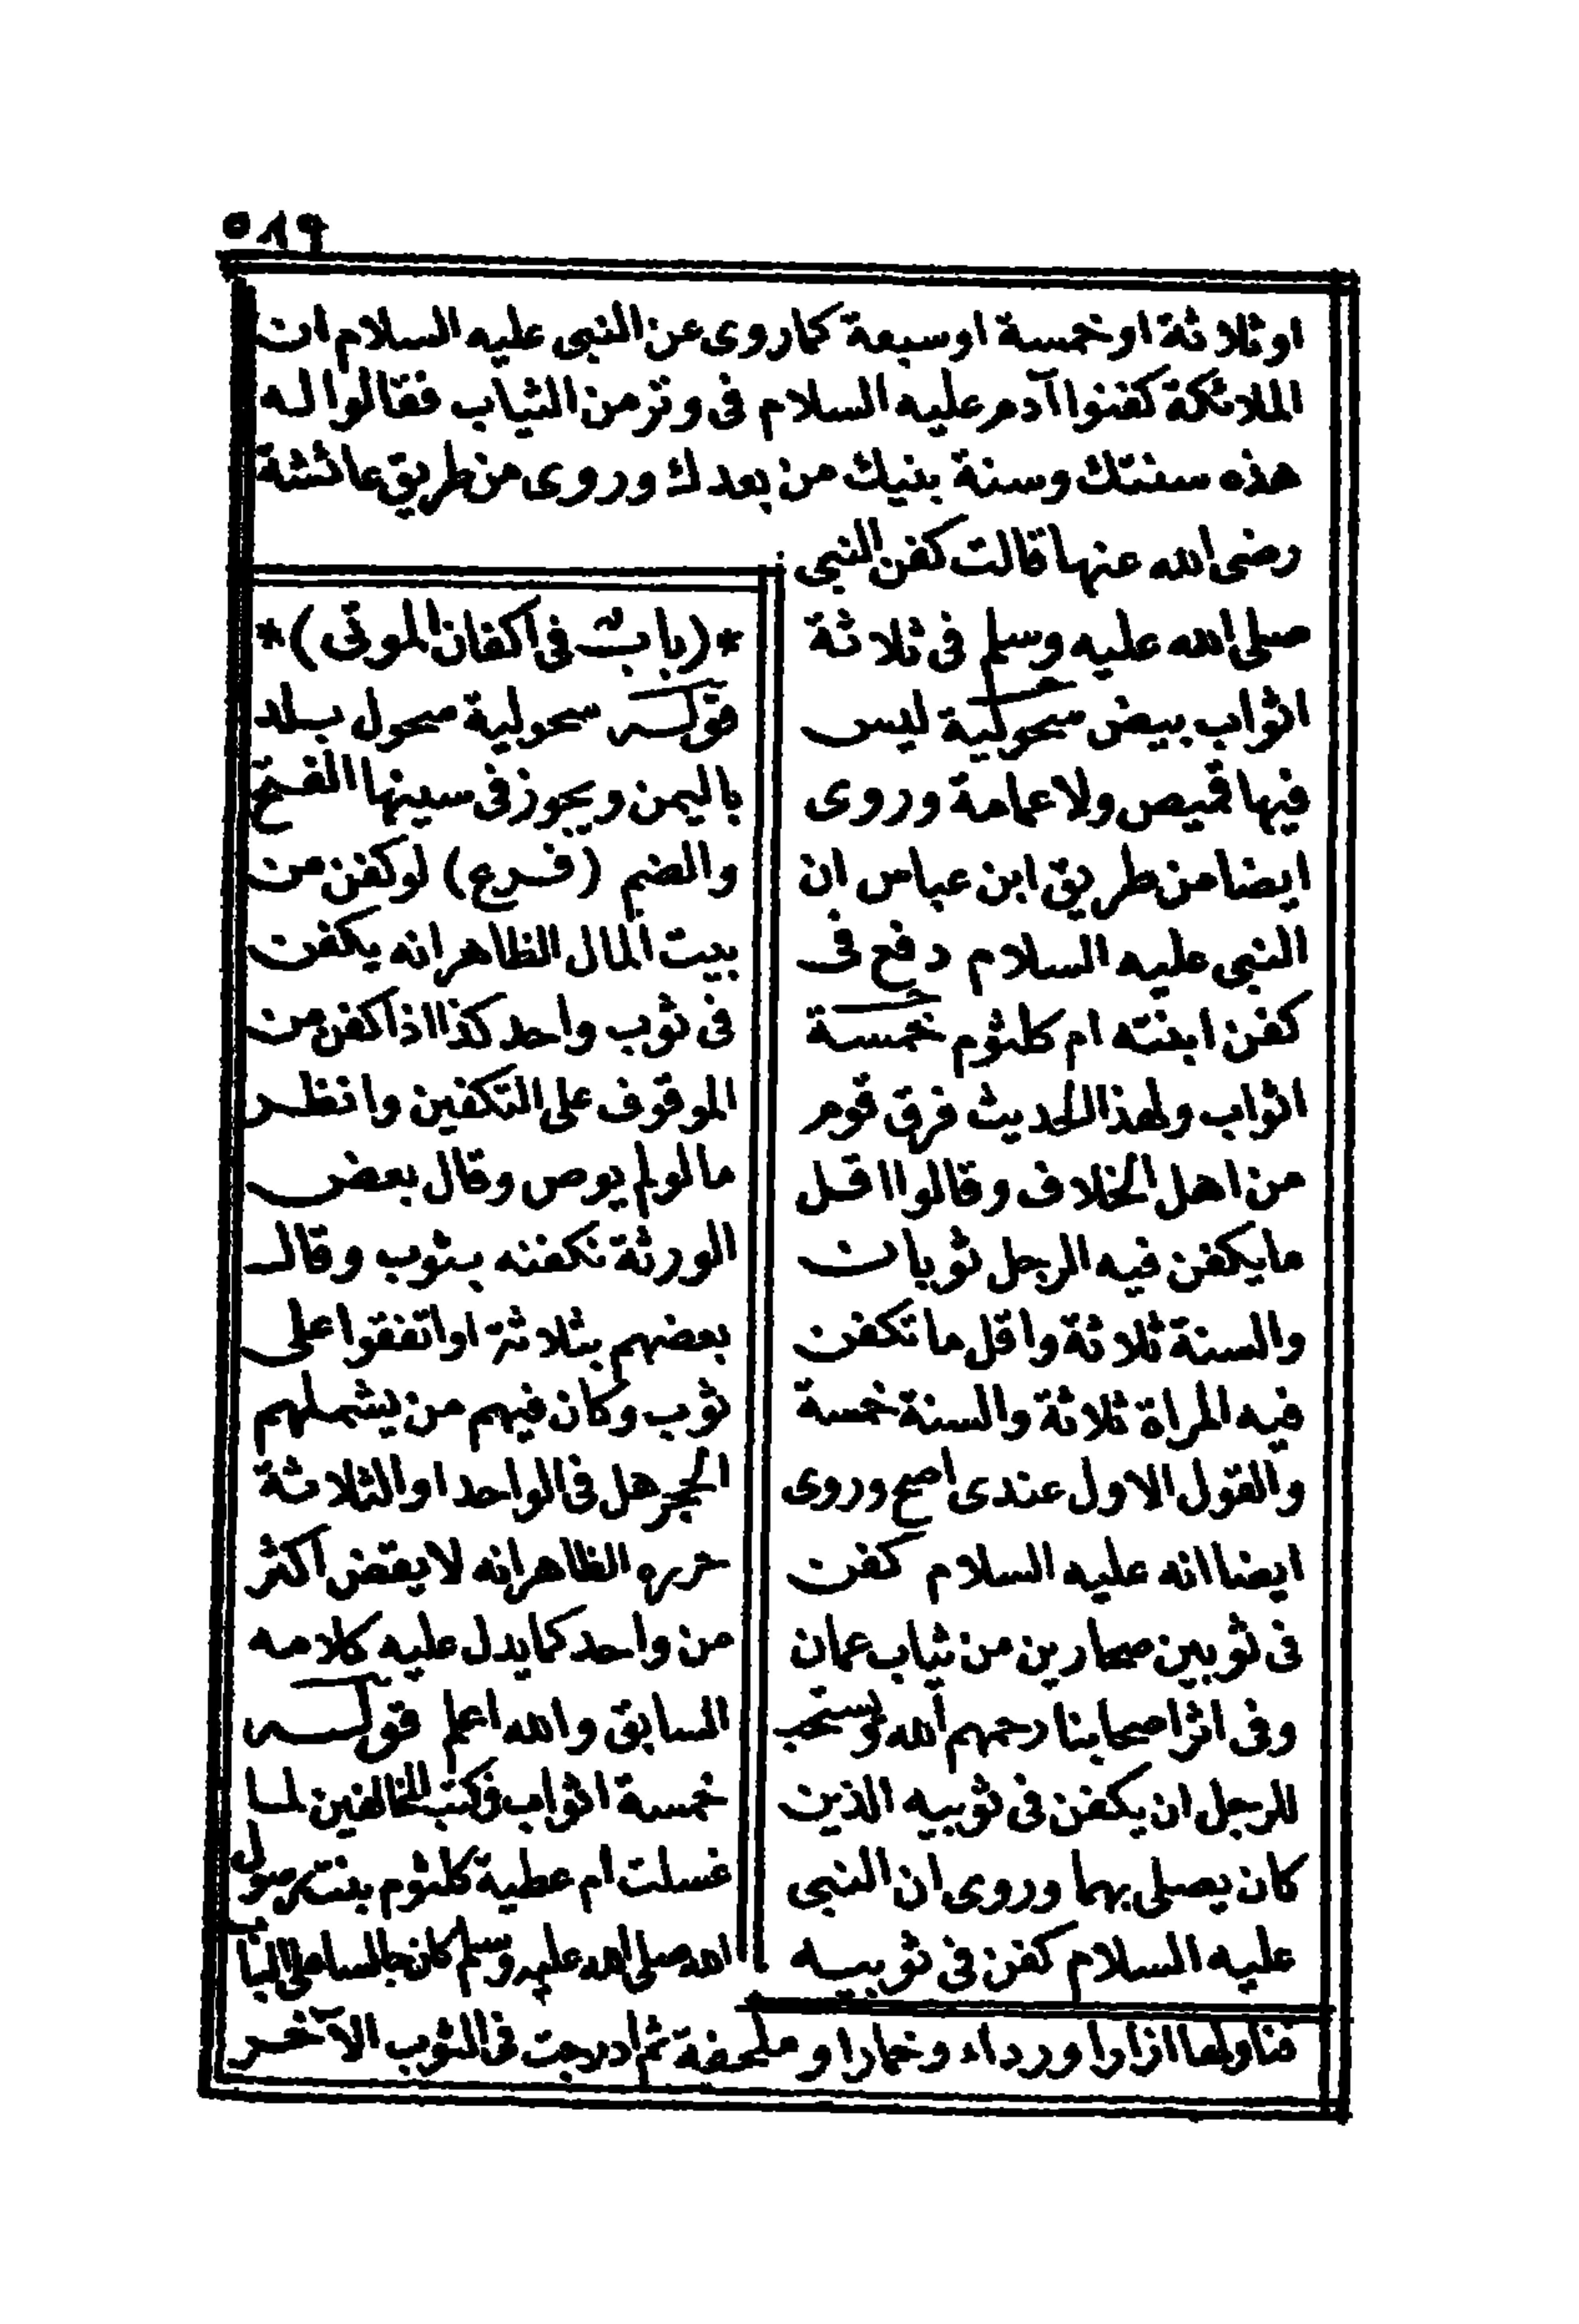 ٥١٩
او ثلاثة او خمسة او سبعة كما روى عن النبى عليه السلام ان
الملائكة كفنوا آدم عليه السلام فى وتر من الثياب فقالوا له
هذه سنتك وسنة بنيك من بعدك وروى من طريق عائشة
رضى الله عنها قالت كفن النبى
صلى الله عليه وسلم فى ثلاثة
اثواب بيض سحولية ليس
فيها قميص ولا عمامة وروى
ايضا من طريق ابن عباس ان
النبى عليه السلام دفع فى
كفن ابنته ام كلثوم خمسة
اثواب ولهذا الحديث فرق قوم
من اهل الخلاف وقالوا اقل
ما يكفن فيه الرجل ثوبان
والسنة ثلاثة واقل ما تكفن
فيه المراة ثلاثة والسنة خمسة
والقول الاول عندى اصح وروى
ايضا انه عليه السلام كفن
فى ثوبين صحارين من ثياب عمان
وفى اثر اصحابنا رحمهم الله ويستحب
للرجل ان يكفن فى ثوبيه الذين
كان يصلى بهما وروى ان النبى
عليه السلام كفن فى ثوبيه
*(باب فى اكفان الموتى)*
قوله سحولية سحول بلد
باليمن ويجوز فى سينها الفتح
والضم (فرع) لو كفن من
بيت المال الظاهر انه يكفن
فى ثوب واحد كذا اذا كفن من
الموقوف على التكفين وانظر
ما لو لم يوص وقال بعض
الورثة نكفنه بثوب وقال
بعضهم بثلاثة او اتفقوا على
ثوب وكان فيهم من يشملهم
الحجر هل فى الواحد او الثلاثة
حرره الظاهر انه لا يقض اكثر
من واحد كما يدل عليه كلامه
السابق والله اعلم قوله
خمسة اثواب وكتب المخالفين لما
غسلت ام عطية كلثوم بنت رسول
الله صلى الله عليه وسلم كان جالسا على البا
فناولها ازارا ورداء وخمارا وملحفة ثم ادرجت فى الثوب الآخر